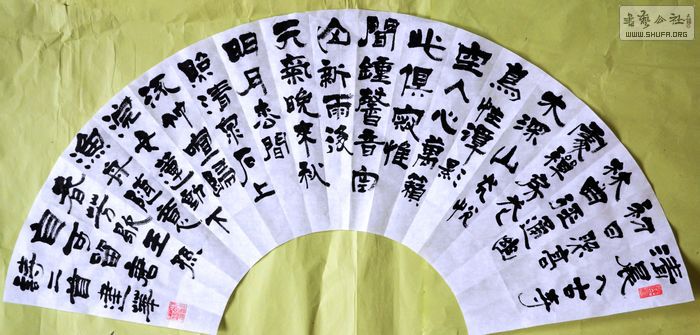 清晨入古寺
初日照高
林曲徑通幽
處禪房花
木深山光悦
鳥性潭影
空人心萬籟
此俱寂惟
聞鐘磬音空
山新雨後
天氣晚來秋
明月松間
照清泉石上
流竹喧歸
浣女蓮動下
漁舟隨意
春芳歇王孫
自可留書
詩二首建華
书艺公社
WWW.SHUFA.ORG